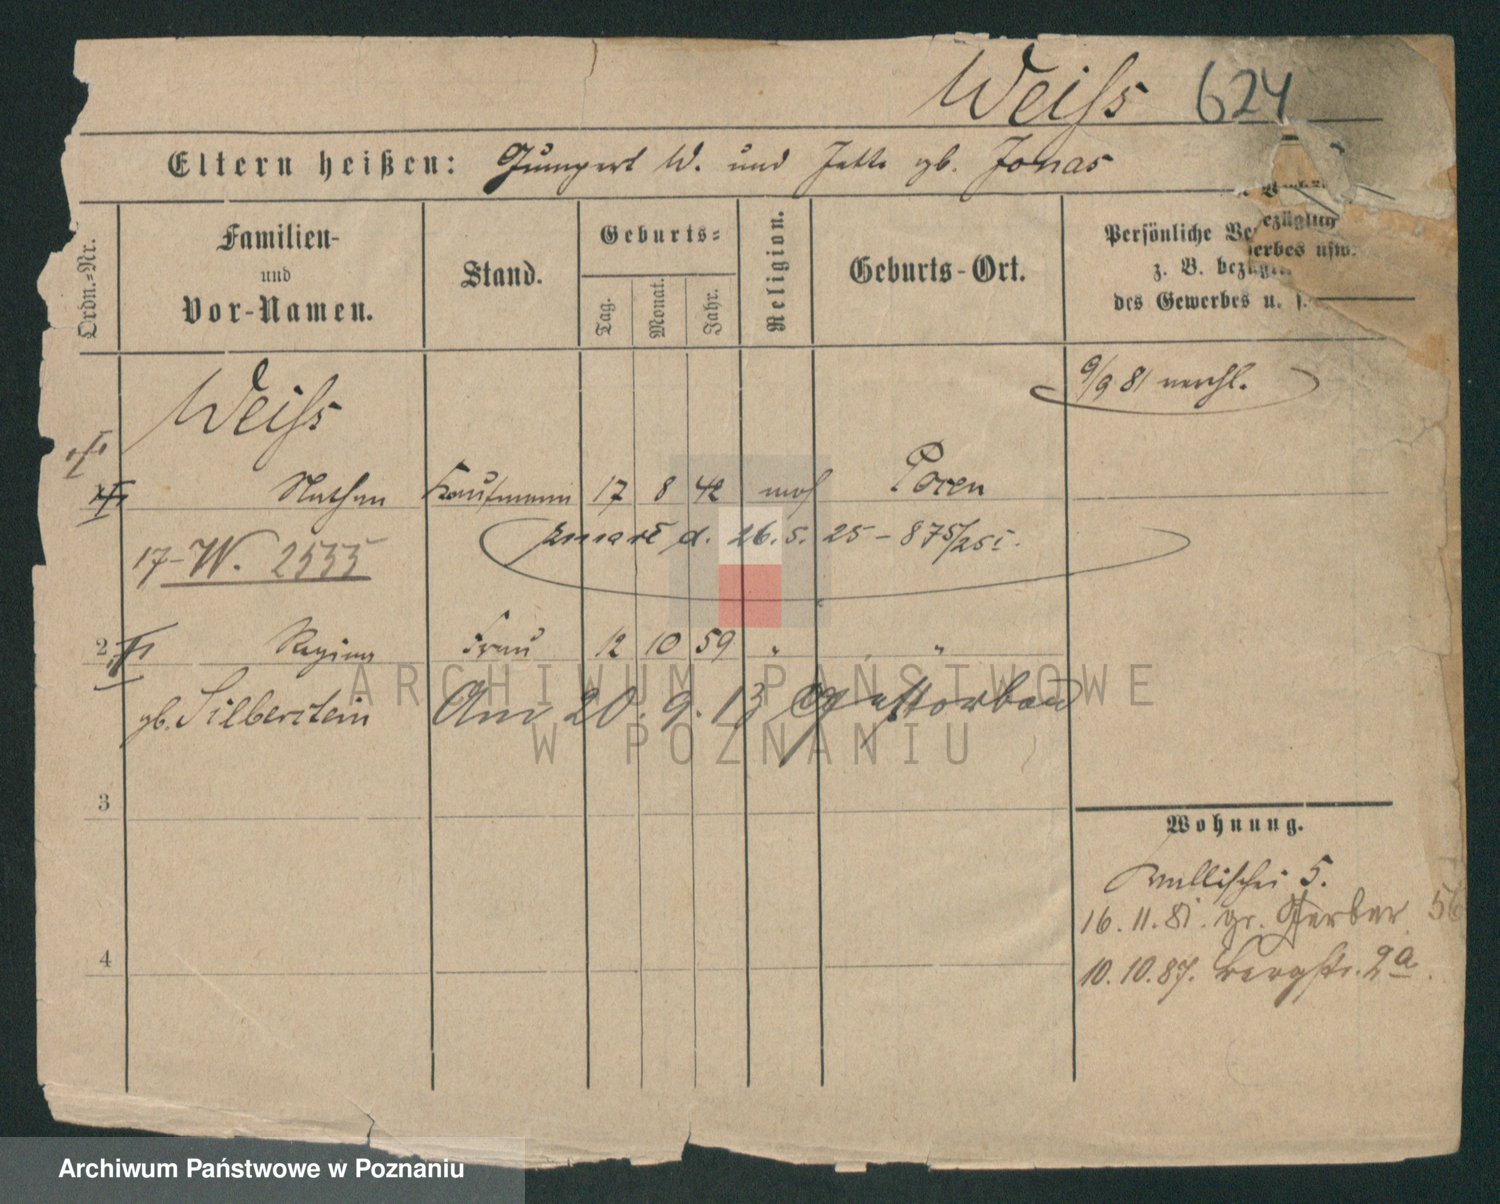 Weiss 624
Eltern heißen: Gumpert W. und Jette gb. Jonas
Ordn.-Nr.
Familien-
und
Vor-Namen.
Stand.
Geburts-
Tag.
Monat.
Jahr.
Religion.
Geburts-Ort.
Persönliche
z. B.
des Gewerbes u. s.
9/9 81 verehl.
Weiss
Nathan Kaufmann 17 8 42 mos Posen
zmarł d. 26.5.25 - 875/25
17-W. 2535
2 Regina Frau 12 10 59 " "
gb. Silberstein Am 20.9.13 gestorben
3
4
Wohnung.
Wallischei 5.
16.11.81. gr. Gerber 56
10.10.87. Bergstr. 2a.
ARCHIWUM PAŃSTWOWE
W POZNANIU
Archiwum Państwowe w Poznaniu